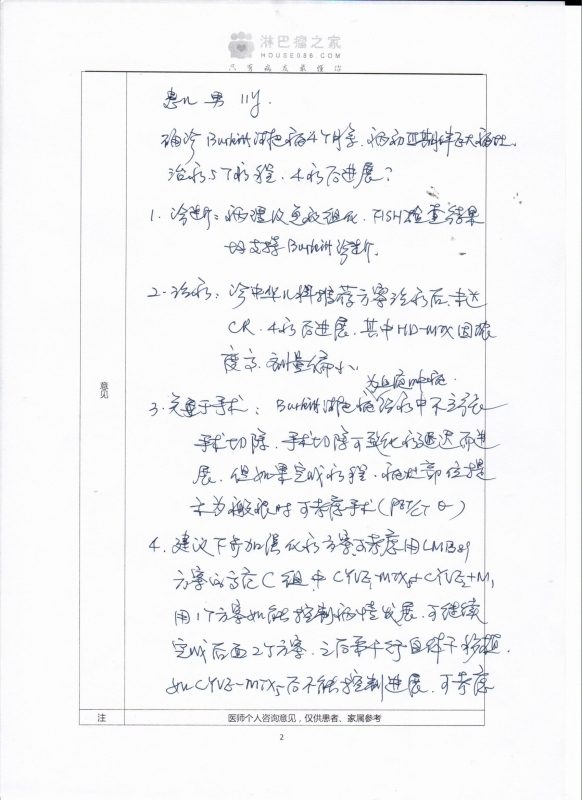 淋巴瘤之家
HOUSE086.COM
只有病友最懂你
患儿 男 11y.
确诊Burkitt淋巴瘤4个月余，病初Ⅲ期伴巨大瘤灶。
治疗5个疗程，4疗后进展？
1. 诊断：病理及免疫组化，FISH检查结果
均支持Burkitt诊断。
2. 治疗：诊中华儿科推荐方案治疗后，未达
CR，4疗后进展，其中HD-MTX因浓
度高，剂量偏小。
为血液肿瘤
3. 关于手术：Burkitt淋巴瘤治疗中不主张
手术切除，手术切除可致化疗延迟而进
展，但如果完成疗程，病灶部位提
示为残留时可考虑手术（PET/CT ⊖）
4. 建议下步加强化疗方案，可考虑用LMB89
方案的高危C组中CYVE1-MTX+CYVE2+M1
用1个方案如能控制病情发展，可继续
完成后面2个方案，之后序贯行自体干移植，
如CYVE-MTX后不能控制进展，可考虑
意见
注
医师个人咨询意见，仅供患者、家属参考
2